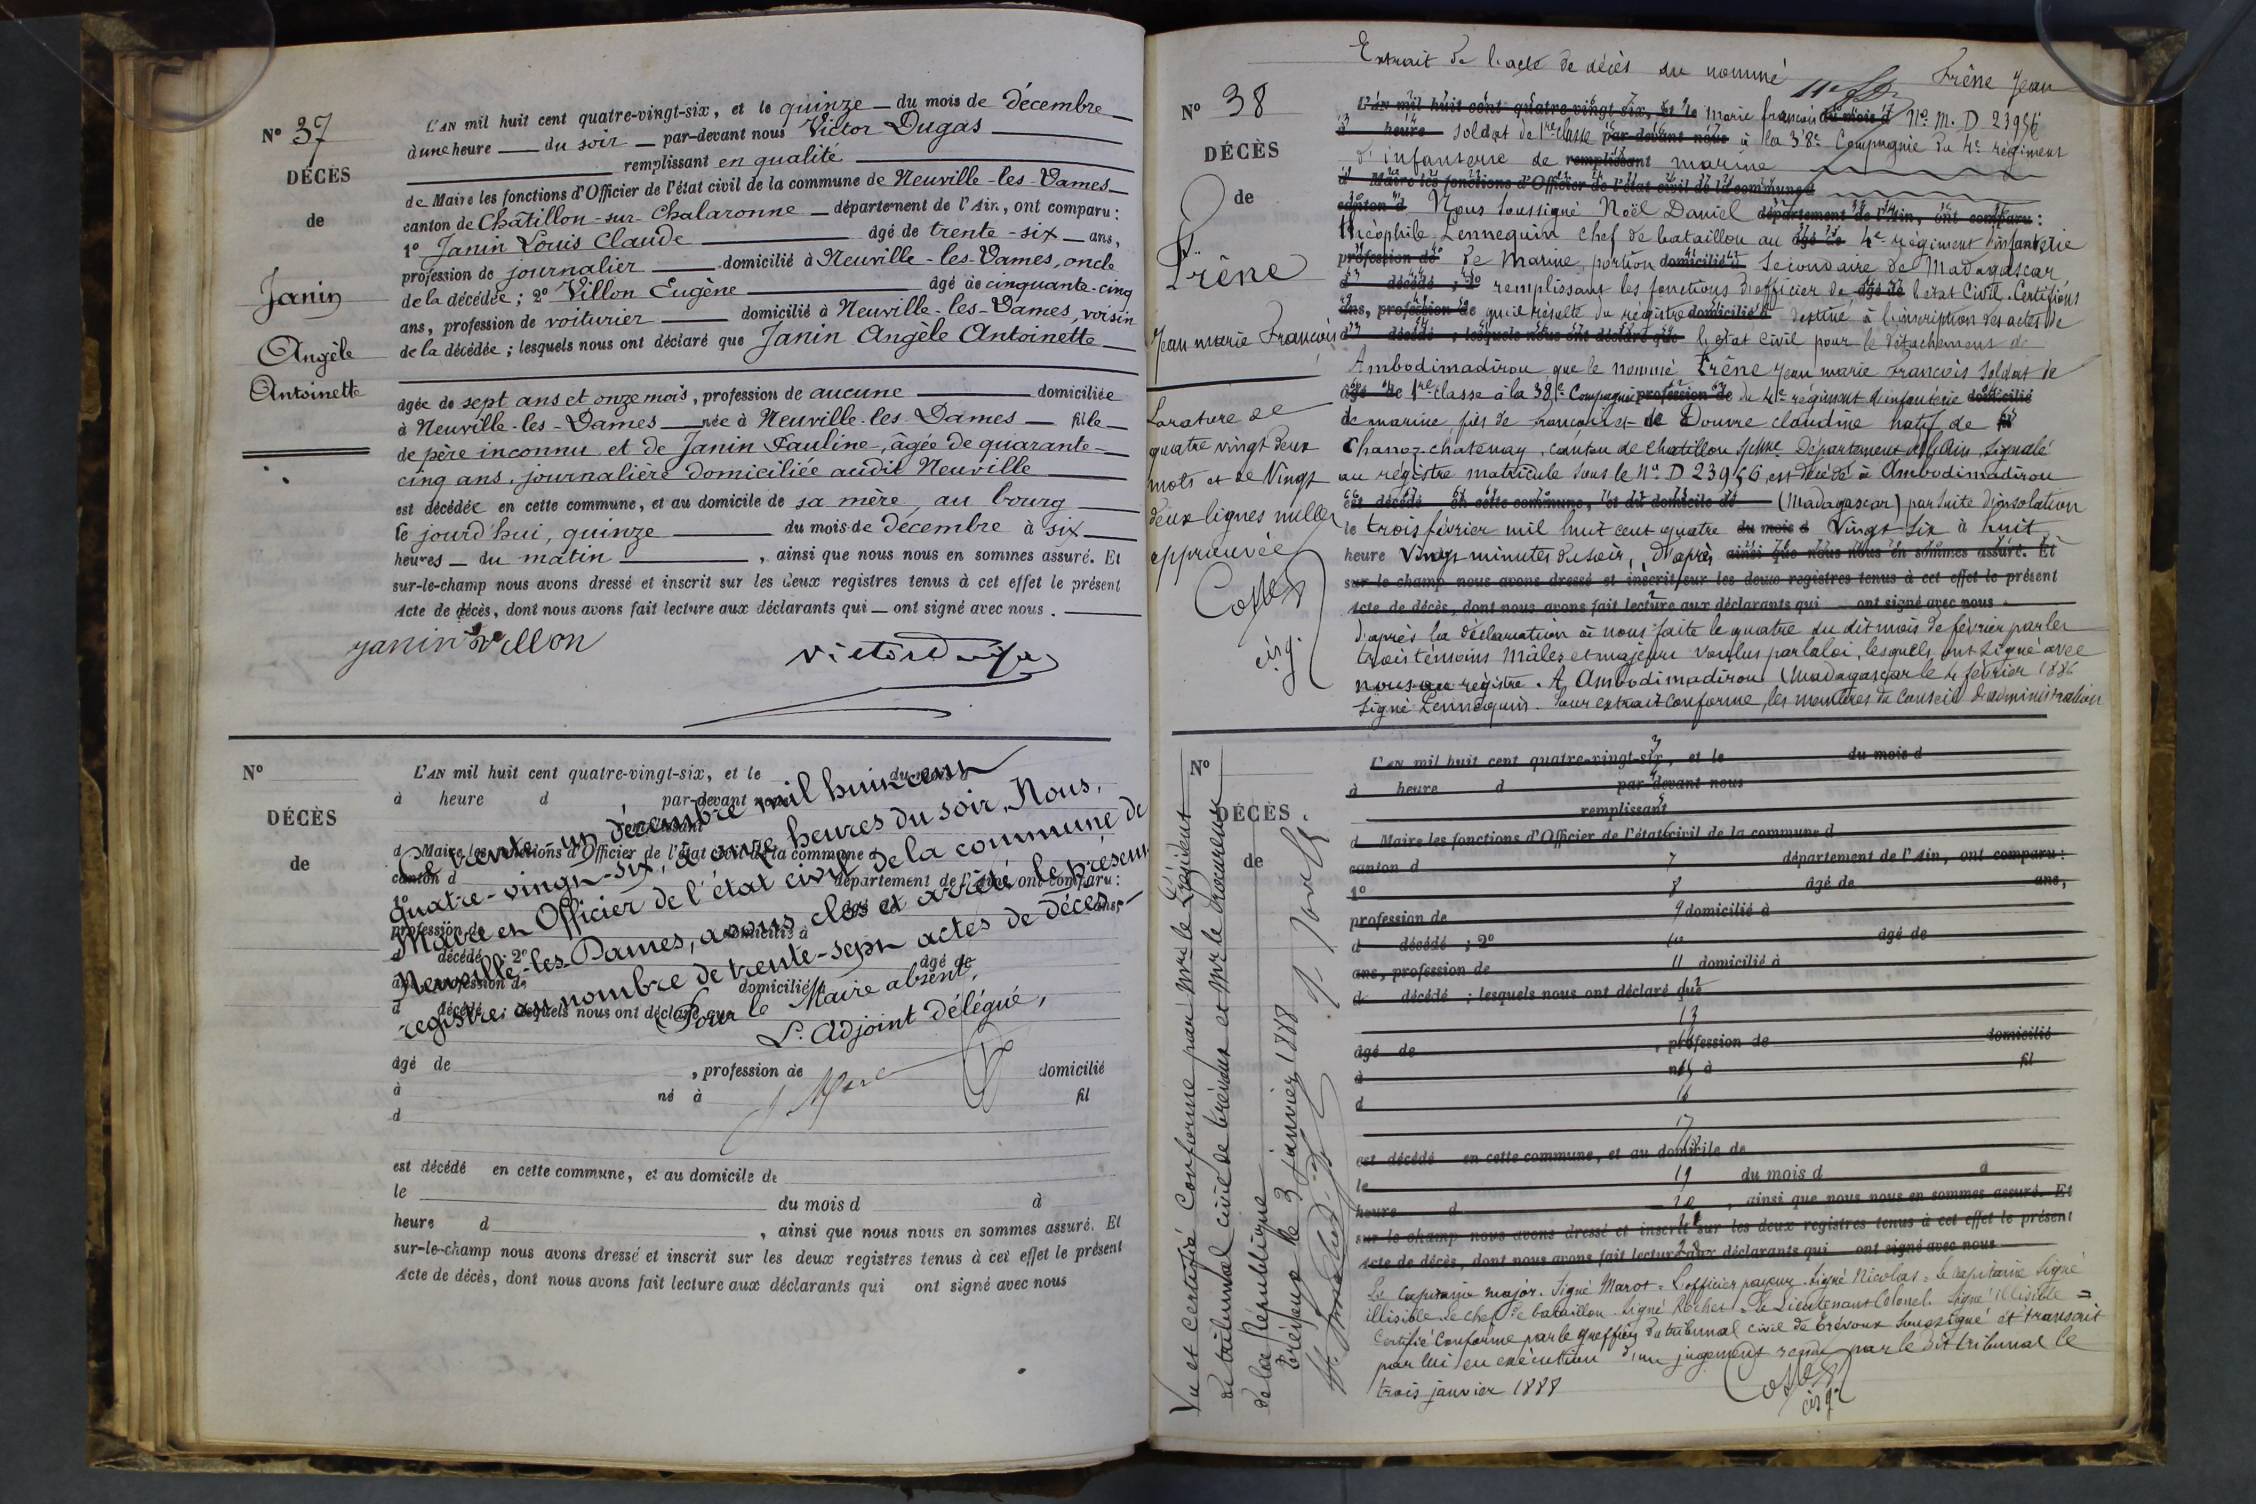 N° 37
DÉCÈS
de
Janin
Angèle
Antoinette
L'AN mil huit cent quatre-vingt-six, et le quinze du mois de décembre
à une heure du soir par-devant nous Victor Dugas
remplissant en qualité
de Maire les fonctions d'Officier de l'état civil de la commune de Neuville-les-Dames
canton de Châtillon-sur-Chalaronne département de l'Ain, ont comparu :
1° Janin Louis Claude âgé de trente-six ans,
profession de journalier domicilié à Neuville-les-Dames, oncle
de la décédée ; 2° Villon Eugène âgé de cinquante-cinq
ans, profession de voiturier domicilié à Neuville-les-Dames, voisin
de la décédée ; lesquels nous ont déclaré que Janin Angèle Antoinette
âgée de sept ans et onze mois, profession de aucune domiciliée
à Neuville-les-Dames née à Neuville-les-Dames fille
de père inconnu et de Janin Pauline, âgée de quarante-
cinq ans, journalière domiciliée audit Neuville
est décédée en cette commune, et au domicile de sa mère, au bourg
le jourd'hui, quinze du mois de décembre à six
heures du matin, ainsi que nous nous en sommes assuré. Et
sur-le-champ nous avons dressé et inscrit sur les deux registres tenus à cet effet le présent
Acte de décès, dont nous avons fait lecture aux déclarants qui ont signé avec nous.
Janin Villon
Victor Dugas
N°
DÉCÈS
de
L'AN mil huit cent quatre-vingt-six, et le du mois d
à heure d par-devant nous
remplissant
d Maire les fonctions d'Officier de l'état civil de la commune d
canton d département de l'Ain, ont comparu :
1° âgé de ans,
profession de domicilié à
d décédé ; 2° âgé de
ans, profession de domicilié à
d décédé ; lesquels nous ont déclaré que
Ce trente-un décembre mil huit cent
quatre-vingt-six, à onze heures du soir, Nous,
Maire en Officier de l'état civil de la commune de
Neuville-les-Dames, avons clos et arrêté le présent
registre au nombre de trente-sept actes de décès.
Pour le Maire absent,
L'Adjoint délégué,
âgé de , profession de domicilié
à né à fil
d
est décédé en cette commune, et au domicile de
le du mois d à
heure d , ainsi que nous nous en sommes assuré. Et
sur-le-champ nous avons dressé et inscrit sur les deux registres tenus à cet effet le présent
Acte de décès, dont nous avons fait lecture aux déclarants qui ont signé avec nous
Extrait de l'acte de décès du nommé Frêne Jean
N° 38
DÉCÈS
de
Frêne
Jean marie François
La rature de
quatre vingt deux
mots et de Vingt
deux lignes nulles
approuvée
L'AN mil huit cent quatre-vingt-six, et le Marie françois du mois d N° M. D 23956
à heure soldat de 1re classe par-devant nous à la 38e Compagnie du 4e régiment
d'infanterie de remplissant marine
d Maire les fonctions d'Officier de l'état civil de la commune d
canton d Nous soussigné Noël Daniel département de l'Ain, ont comparu :
théophile Lennequin chef de bataillon au âgé de 4e régiment d'infanterie
profession de de Marine, portion domicilié à secondaire de Madagascar
d décédé ; 2° remplissant les fonctions d'officier de âgé de l'état Civil. Certifions
ans, profession de qu'il résulte du registre domicilié à destiné à l'inscription des actes de
d décédé ; lesquels nous ont déclaré que l'état Civil pour le détachement de
Ambodimadirou que le nommé Frêne Jean marie François soldat de
âgé de 1re classe à la 38e Compagnie profession de du 4e régiment d'infanterie domicilié
de marine, fils de françois et de Douvre claudine natif de
Chanoz-chatenay, canton de Chatillon s/chne Département de l'Ain, signalé
au registre matricule sous le N° D 23956, est décédé à Ambodimadirou
est décédé en cette commune, et au domicile de (Madagascar) par suite d'insolation
le trois février mil huit cent quatre du mois d Vingt-six à huit
heure Vingt minutes du soir, D'après ainsi que nous nous en sommes assuré. Et
sur-le-champ nous avons dressé et inscrit sur les deux registres tenus à cet effet le présent
Acte de décès, dont nous avons fait lecture aux déclarants qui ont signé avec nous.
d'après la déclaration à nous faite le quatre du dit mois de février par les
trois témoins mâles et majeurs voulus par la loi, lesquels ont signé avec
nous au registre. A Ambodimadirou (Madagascar le 4 février 1886
Signé Lennequin. Pour extrait conforme, les membres du Conseil d'administration
N°
DÉCÈS
de
Vu et certifié Conforme par Mr le Président
du tribunal civil de trévoux et Mr le Procureur
de la République
trévoux le 3 janvier 1888
L'AN mil huit cent quatre-vingt-six, et le du mois d
à heure d par-devant nous
remplissant
d Maire les fonctions d'Officier de l'état civil de la commune d
canton d 7 département de l'Ain, ont comparu :
1° 8 âgé de ans,
profession de 9 domicilié à
d décédé ; 2° 10 âgé de
ans, profession de 11 domicilié à
d décédé ; lesquels nous ont déclaré que
13
âgé de , profession de domicilié
à né à fil
d 16
17
est décédé en cette commune, et au domicile de
le 19 du mois d à
heure d 20 , ainsi que nous nous en sommes assuré. Et
sur-le-champ nous avons dressé et inscrit sur les deux registres tenus à cet effet le présent
Acte de décès, dont nous avons fait lecture aux déclarants qui ont signé avec nous
Le Capitaine major. Signé Marot = L'officier payeur. Signé Nicolas = le Capitaine Signé
illisible. Le chef de bataillon. Signé Rochet = le Lieutenant Colonel. Signé illisible =
Certifié Conforme par le greffier du tribunal civil de Trévoux soussigné et transcrit
par lui en exécution d'un jugement rendu par le dit tribunal le
trois janvier 1888